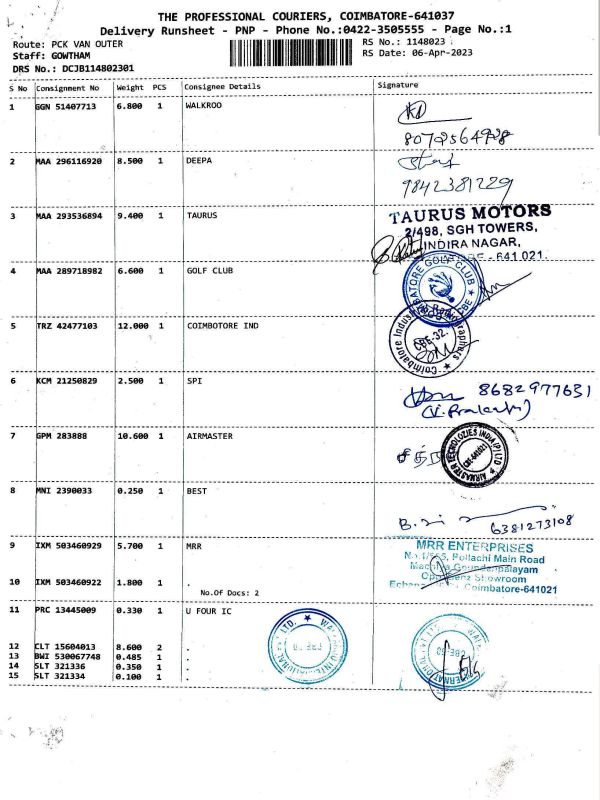 THE PROFESSIONAL COURIERS, COIMBATORE-641037
Delivery Runsheet - PNP - Phone No.:0422-3505555 - Page No.:1
Route: PCK VAN OUTER
RS No.: 1148023
Staff: GOWTHAM
RS Date: 06-Apr-2023
DRS No.: DCJB114802301
S No Consignment No Weight PCS Consignee Details Signature
1 GGN 51407713 6.800 1 WALKROO
8072564928
2 MAA 296116920 8.500 1 DEEPA
9842381229
3 MAA 293536894 9.400 1 TAURUS
TAURUS MOTORS
2/498, SGH TOWERS,
INDIRA NAGAR,
- 641 021.
4 MAA 289718982 6.600 1 GOLF CLUB
GOLF CLUB
5 TRZ 42477103 12.000 1 COIMBOTORE IND
Coimbatore Indus
CBE-32.
6 KCM 21250829 2.500 1 SPI
8682977631
7 GPM 283888 10.600 1 AIRMASTER
AIRMASTER INDIA (P) LTD
CBE-641021
8 MNI 2390033 0.250 1 BEST
6381273108
9 IXM 503460929 5.700 1 MRR
MRR ENTERPRISES
Pollachi Main Road
Showroom
Coimbatore-641021
10 IXM 503460922 1.800 1 .
No.Of Docs: 2
11 PRC 13445009 0.330 1 U FOUR IC
12 CLT 15604013 8.600 2 .
13 BWI 530067748 0.485 1 .
14 SLT 321336 0.350 1 .
15 SLT 321334 0.100 1 .